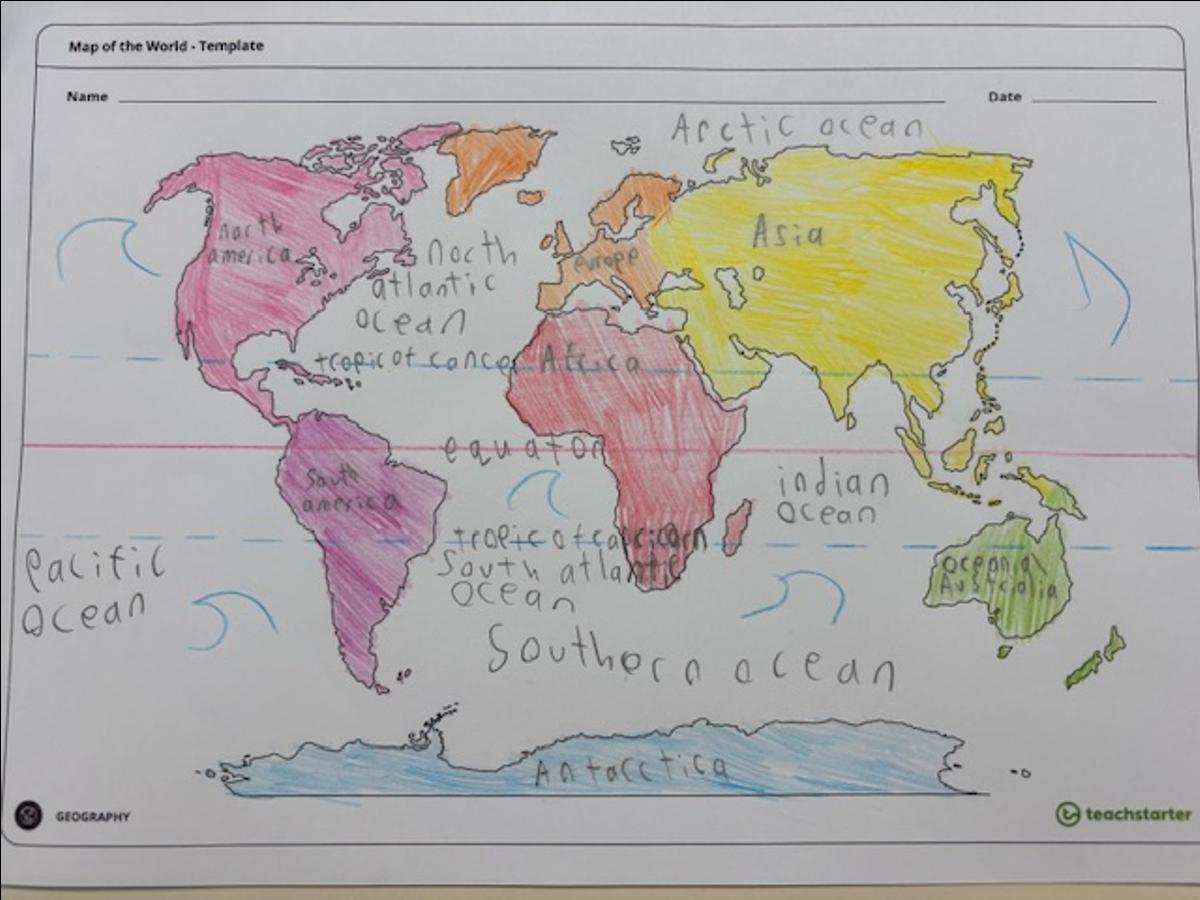 Map of the World - Template
Name
Date
Arctic ocean
north
america
north
atlantic
ocean
europe
Asia
tropic of cance
Africa
equator
South
america
indian
ocean
tropic of capricorn
South atlantic
ocean
pacific
ocean
oceania\
Australia
Southern ocean
Antarctica
GEOGRAPHY
teachstarter